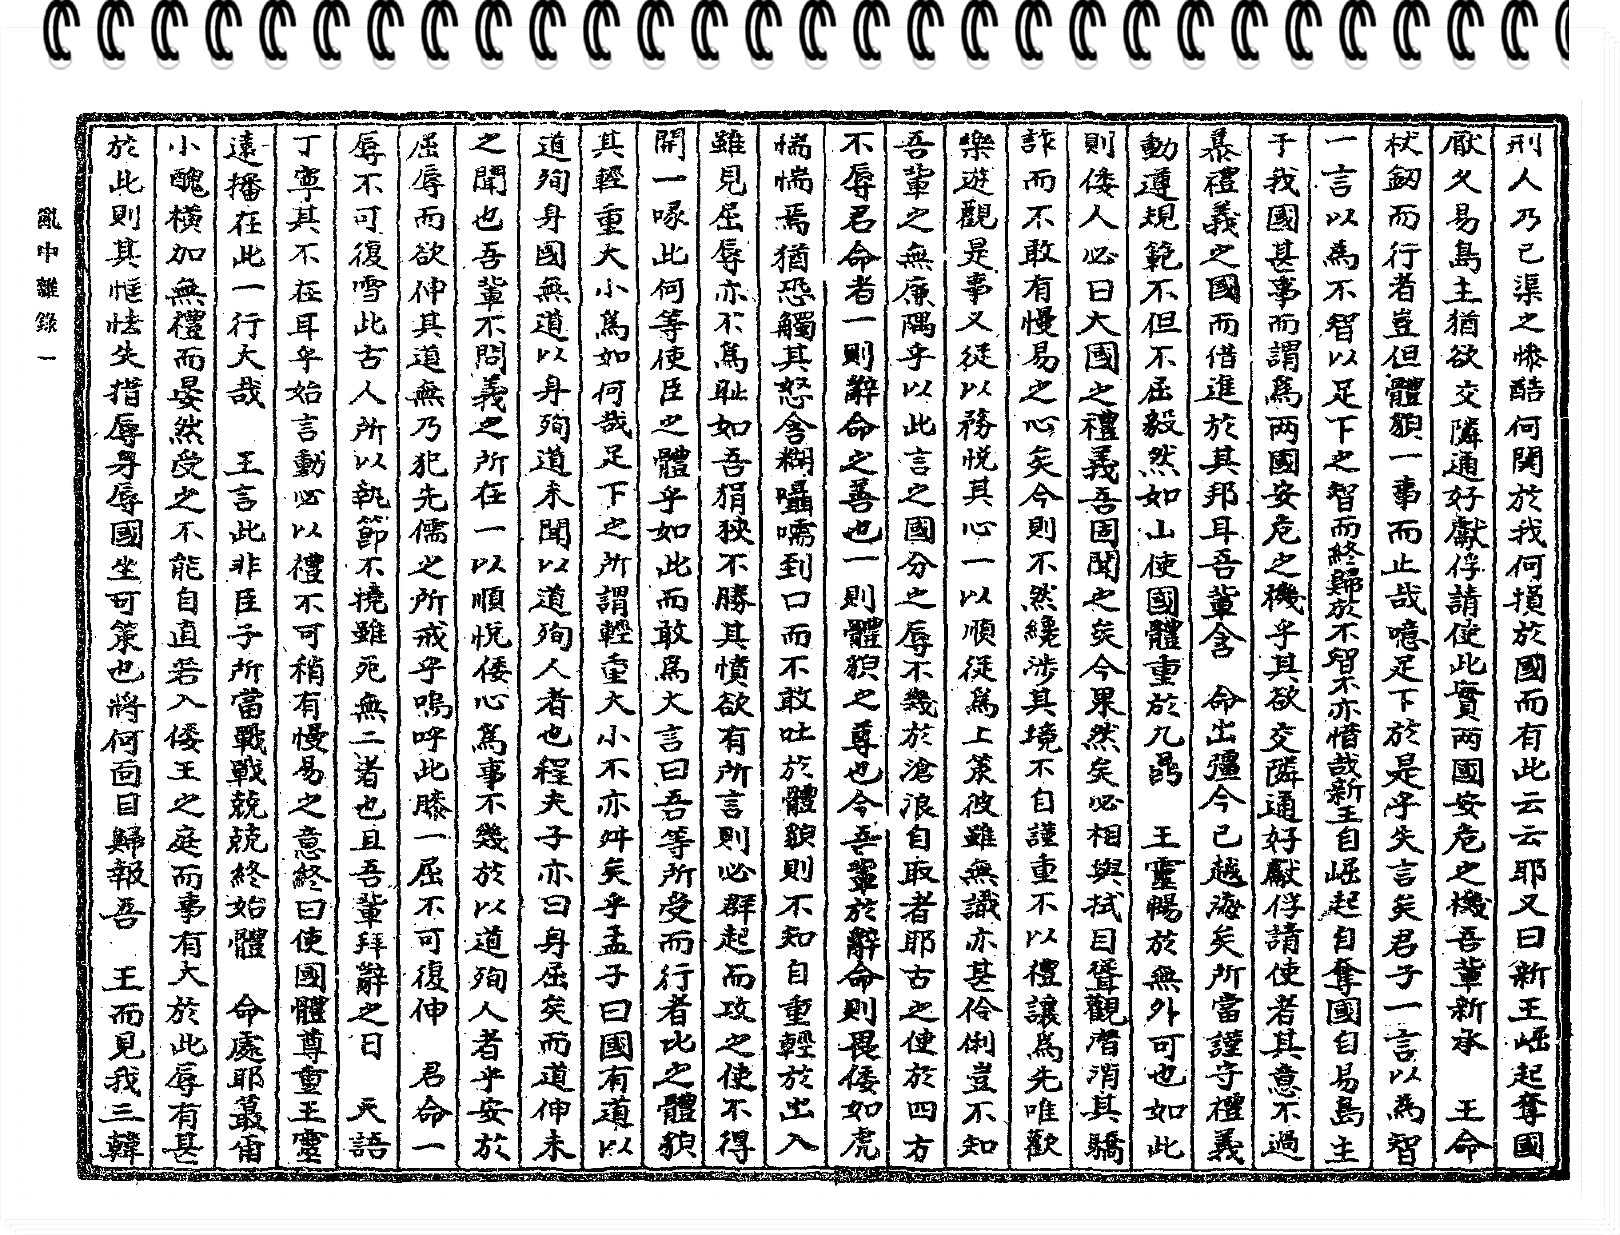 刑人乃已渠之慘酷何関於我何損於國而有此云云耶又曰新王崛起奪國
厭久易島主猶欲交隣通好獻俘請使此實两國安危之機吾輩新承 王命
杖劒而行者豈但體貌一事而止哉噫足下於是乎失言矣君子一言以為智
一言以為不智以足下之智而終歸於不智不亦惜哉新王自崛起自奪國自易島主
于我國甚事而謂爲两國安危之機乎其欲交隣通好獻俘請使者其意不過
慕禮義之國而借進於其邦耳吾輩含 命出彊今已越海矣所當謹守禮義
動遵規範不但不屈毅然如山使國體重於九鼎 王靈暢於無外可也如此
則倭人必曰大國之禮義吾固聞之矣今果然矣必相與拭目聳觀潜消其驕
詐而不敢有慢易之心矣今則不然纔涉其境不自謹重不以禮讓為先唯歡
樂遊觀是事又従以務悅其心一以順従爲上策彼雖無識亦甚伶俐豈不知
吾輩之無廉隅乎以此言之國分之辱不幾於滄浪自取者耶古之使於四方
不辱君命者一則辭命之善也一則體貌之尊也今吾輩於辭命則畏倭如虎
惴惴焉猶恐觸其怒含糊囁嚅到口而不敢吐於體貌則不知自重輕於出入
雖見屈辱亦不爲耻如吾狷狹不勝其憤欲有所言則必群起而攻之使不得
開一喙此何等使臣之體乎如此而敢爲大言曰吾等所受而行者比之體貌
其輕重大小爲如何哉足下之所謂輕重大小不亦舛矣乎孟子曰國有道以
道殉身國無道以身殉道未聞以道殉人者也程夫子亦曰身屈矣而道伸未
之聞也吾輩不問義之所在一以順悅倭心爲事不幾於以道殉人者乎安於
屈辱而欲伸其道無乃犯先儒之所戒乎嗚呼此膝一屈不可復伸 君命一
辱不可復雪此古人所以執節不撓雖死無二者也且吾輩拜辭之日 天語
丁寧其不在耳乎始言動必以禮不可稍有慢易之意終曰使國體尊重王靈
遠播在此一行大哉 王言此非臣子所當戰戰兢兢終始體 命處耶蕞爾
小醜橫加無禮而晏然受之不能自直若入倭王之庭而事有大於此辱有甚
於此則其恇怯失措辱身辱國坐可策也將何面目歸報吾 王而見我三韓
亂中雜錄一